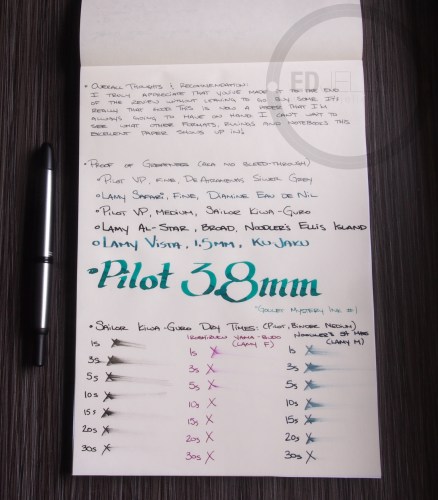 ED JEL
• Overall Thoughts & Recommendation:
I truly appreciate that you've made it to the end
of the review without leaving to go buy some. It's
really that good. This is now a paper that I'm
always going to have on hand. I can't wait to
see what other formats, rulings and notebooks this
excellent paper shows up in.
• Proof of Goodness (aka no bleed-through)
• Pilot VP, Fine, De Atramentis Silver Grey
• Lamy Safari, Fine, Diamine Eau de Nil
• Pilot VP, Medium, Sailor Kiwa-Guro
• Lamy Al-Star, Broad, Noodler's Ellis Island
• Lamy Vista, 1.5mm, Ku-Jaku
• Pilot 3.8mm
(Goulet Mystery Ink #1)
• Sailor Kiwa-Guro Dry Times: (Pilot, Binder Medium)
Iroshizuku Yama-Budo (Lamy F)
Noodler's (Lamy M)
1s X 1s X 1s X
3s X 3s X 3s X
5s X 5s X 5s X
10s X 10s X 10s X
15s X 15s X 15s X
20s X 20s X 20s X
30s X 30s X 30s X